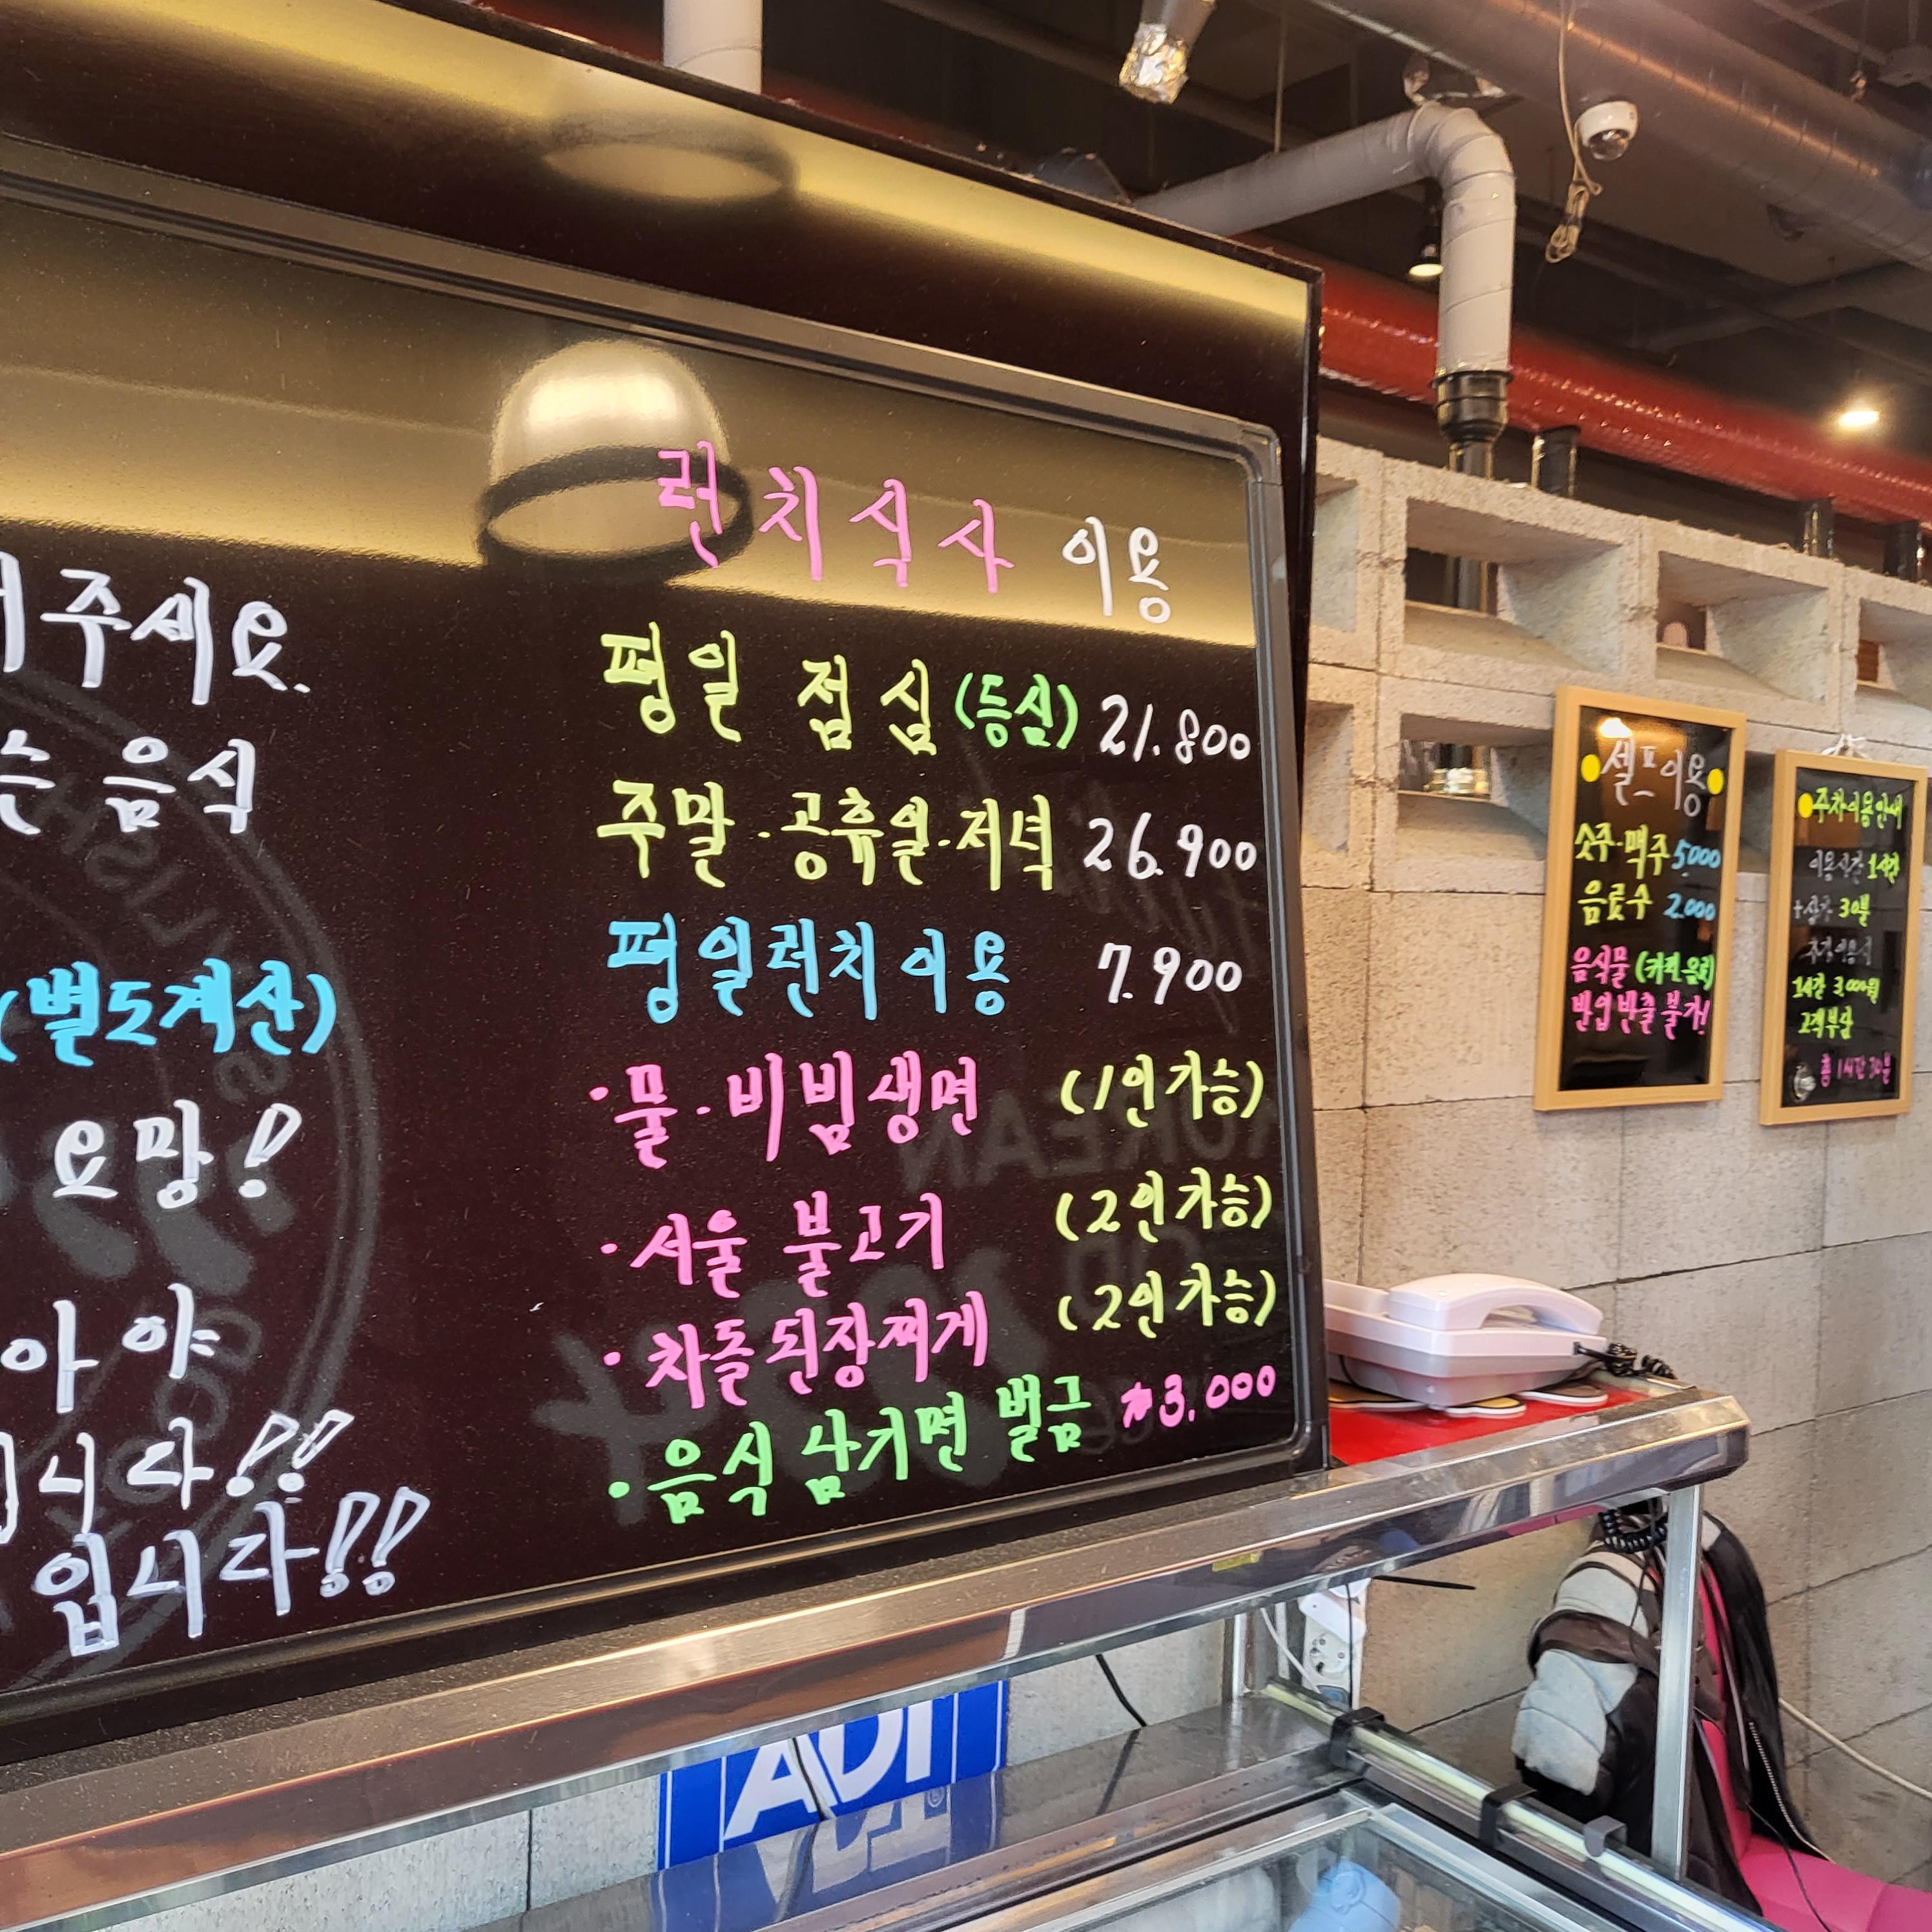 주세요.
는 음식
(별도계산)
요망!
아야
입니다!!
입니다!!
런치식사 이용
평일 점심 (등심) 21.800
주말·공휴일·저녁 26.900
평일런치이용 7.900
·물·비빔생면 (1인가능)
·서울 불고기 (2인가능)
·차돌된장찌게 (2인가능)
·음식 남기면 벌금 ₩3,000
셀프이용
솟주·맥주 5.000
음료수 2.000
음식물 (카페.음료)
반입 반출 불가!
주차이용안내
이용시간 1시간
30분
1시간 3,000원
고객부담
총 1시간 30분
KOREAN
ADT